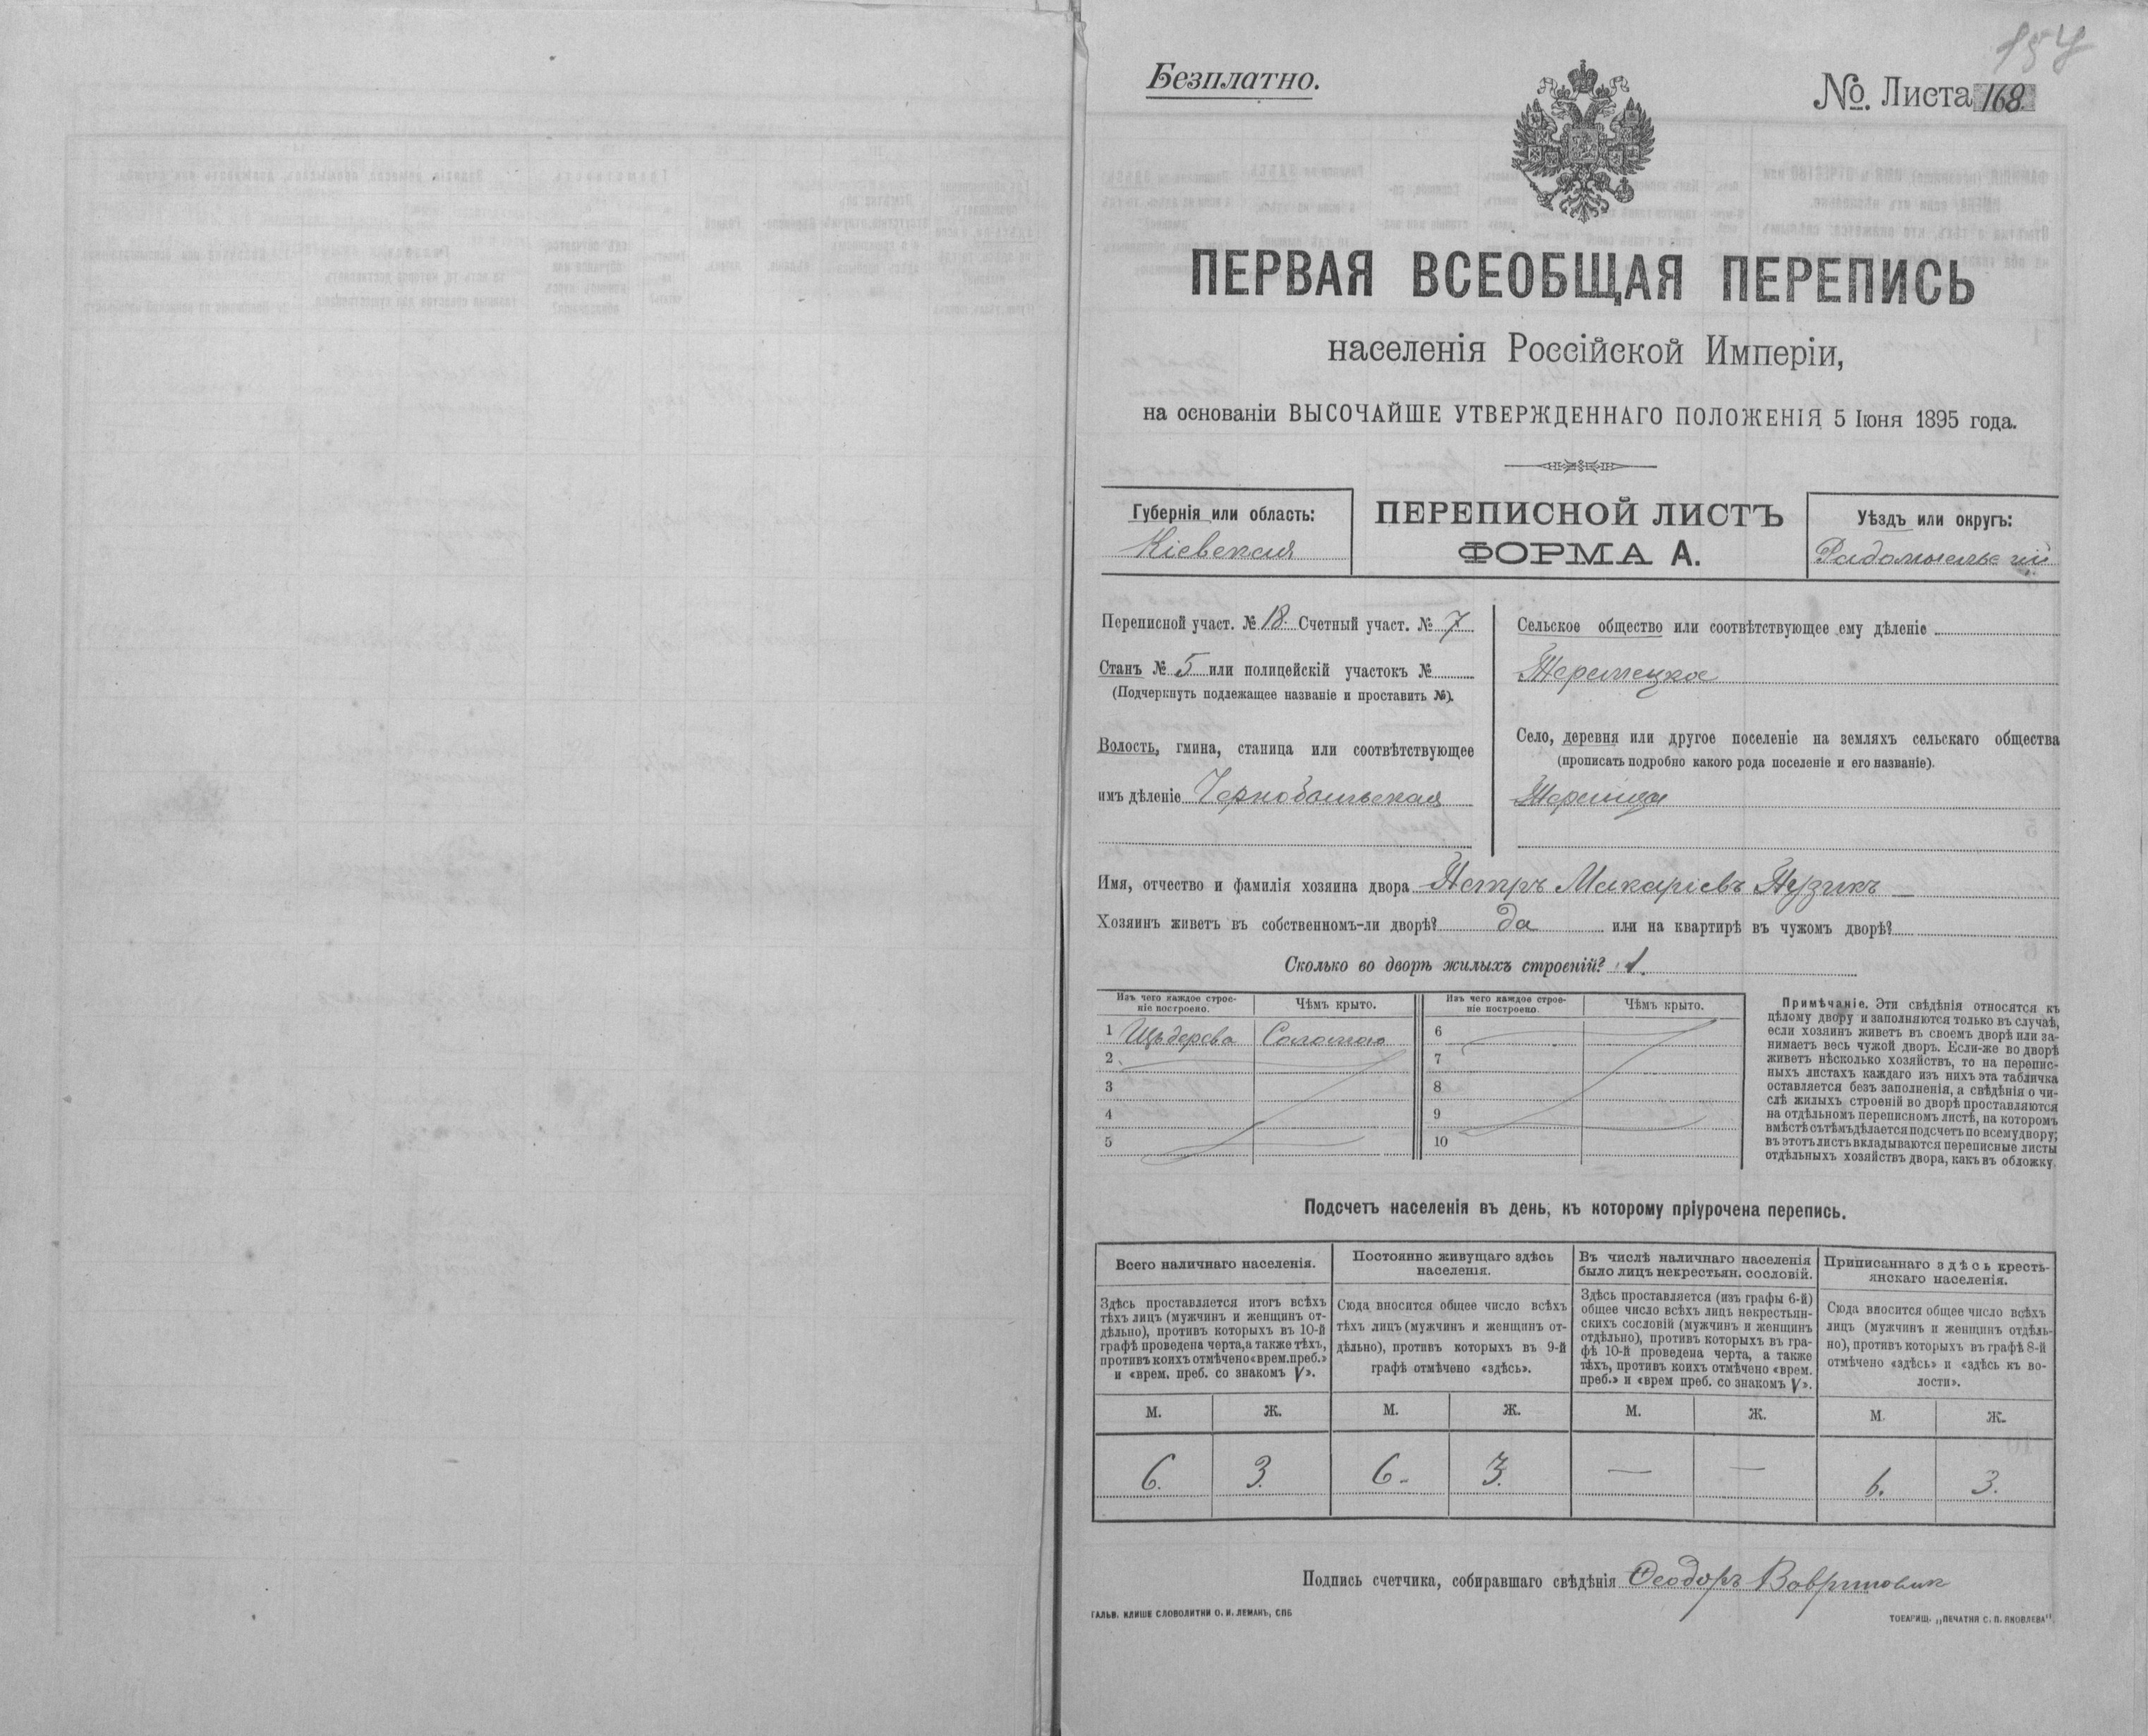 154
Безплатно.
№ Листа 168.
ПЕРВАЯ ВСЕОБЩАЯ ПЕРЕПИСЬ
населенія Россійской Имперіи,
на основаніи ВЫСОЧАЙШЕ УТВЕРЖДЕННАГО ПОЛОЖЕНІЯ 5 Іюня 1895 года.
Губернія или область:
Кіевская
ПЕРЕПИСНОЙ ЛИСТЪ
ФОРМА А.
Уѣздъ или округъ:
Радомысльскій
Переписной участ. № 18. Счетный участ. № 7
Станъ № 5 или полицейскій участокъ №
(Подчеркнуть подлежащее названіе и проставить №).
Волость, гмина, станица или соотвѣтствующее
имъ дѣленіе Чернобыльская
Сельское общество или соотвѣтствующее ему дѣленіе
Теремецкое
Село, деревня или другое поселеніе на земляхъ сельскаго общества
(прописать подробно какого рода поселеніе и его названіе).
Теремцы
Имя, отчество и фамилія хозяина двора Петръ Макаріевъ Пузикъ
Хозяинъ живетъ въ собственномъ-ли дворѣ? да или на квартирѣ въ чужомъ дворѣ?
Сколько во дворѣ жилыхъ строеній? 1.
Изъ чего каждое строе-
ніе построено.
Чѣмъ крыто.
Изъ чего каждое строе-
ніе построено.
Чѣмъ крыто.
1 Изъ дерева Соломою
2
3
4
5
6
7
8
9
10
Примѣчаніе. Эти свѣдѣнія относятся къ
цѣлому двору и заполняются только въ случаѣ,
если хозяинъ живетъ въ своемъ дворѣ или за-
нимаетъ весь чужой дворъ. Если-же во дворѣ
живетъ нѣсколько хозяйствъ, то на перепис-
ныхъ листахъ каждаго изъ нихъ эта табличка
оставляется безъ заполненія, а свѣдѣнія о чи-
слѣ жилыхъ строеній во дворѣ проставляются
на отдѣльномъ переписномъ листѣ, на которомъ
вмѣстѣ съ тѣмъ дѣлается подсчетъ по всему двору;
въ этотъ листъ вкладываются переписные листы
отдѣльныхъ хозяйствъ двора, какъ въ обложку.
Подсчетъ населенія въ день, къ которому пріурочена перепись.
Всего наличнаго населенія.
Здѣсь проставляется итогъ всѣхъ
тѣхъ лицъ (мужчинъ и женщинъ от-
дѣльно), противъ которыхъ въ 10-й
графѣ проведена черта, а также тѣхъ,
противъ коихъ отмѣчено «врем. преб.»
и «врем. преб. со знакомъ V».
Постоянно живущаго здѣсь
населенія.
Сюда вносится общее число всѣхъ
тѣхъ лицъ (мужчинъ и женщинъ от-
дѣльно), противъ которыхъ въ 9-й
графѣ отмѣчено «здѣсь».
Въ числѣ наличнаго населенія
было лицъ некрестьян. сословій.
Здѣсь проставляется (изъ графы 6-й)
общее число всѣхъ лицъ некрестьян-
скихъ сословій (мужчинъ и женщинъ
отдѣльно), противъ которыхъ въ гра-
фѣ 10-й проведена черта, а также
тѣхъ, противъ коихъ отмѣчено «врем.
преб.» и «врем преб. со знакомъ V».
Приписаннаго здѣсь кресть-
янскаго населенія.
Сюда вносится общее число всѣхъ
лицъ (мужчинъ и женщинъ отдѣль-
но), противъ которыхъ въ графѣ 8-й
отмѣчено «здѣсь» и «здѣсь къ во-
лости».
М. Ж. М. Ж. М. Ж. М. Ж.
6. 3. 6. 3. — — 6. 3.
Подпись счетчика, собиравшаго свѣдѣнія Ѳеодоръ
ГАЛЬВ. КЛИШЕ СЛОВОЛИТНИ О. И. ЛЕМАНЪ, СПБ
ТОВАРИЩ. „ПЕЧАТНЯ С. П. ЯКОВЛЕВА".